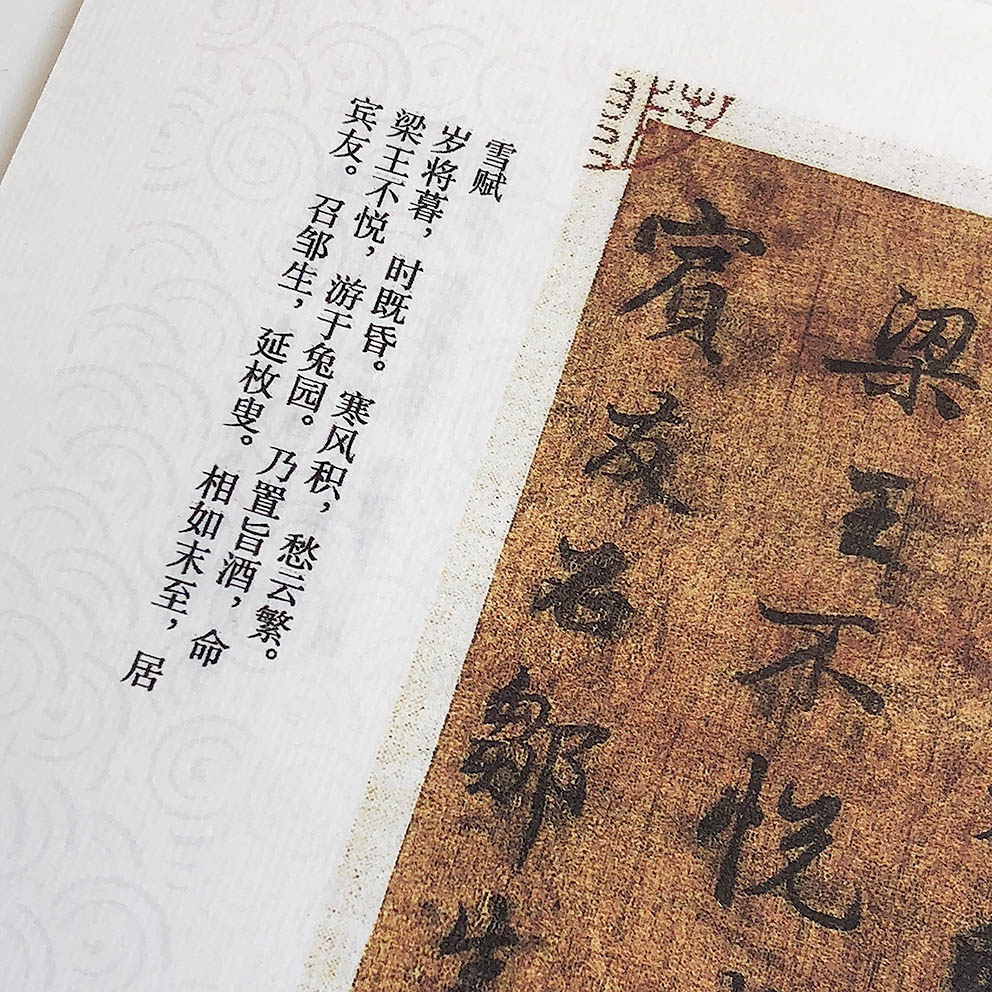 雪赋
岁将暮，时既昏。寒风积，愁云繁。
梁王不悦，游于兔园。乃置旨酒，命
宾友。召邹生，延枚叟。相如末至，居
梁王不悦
賓友召鄒生